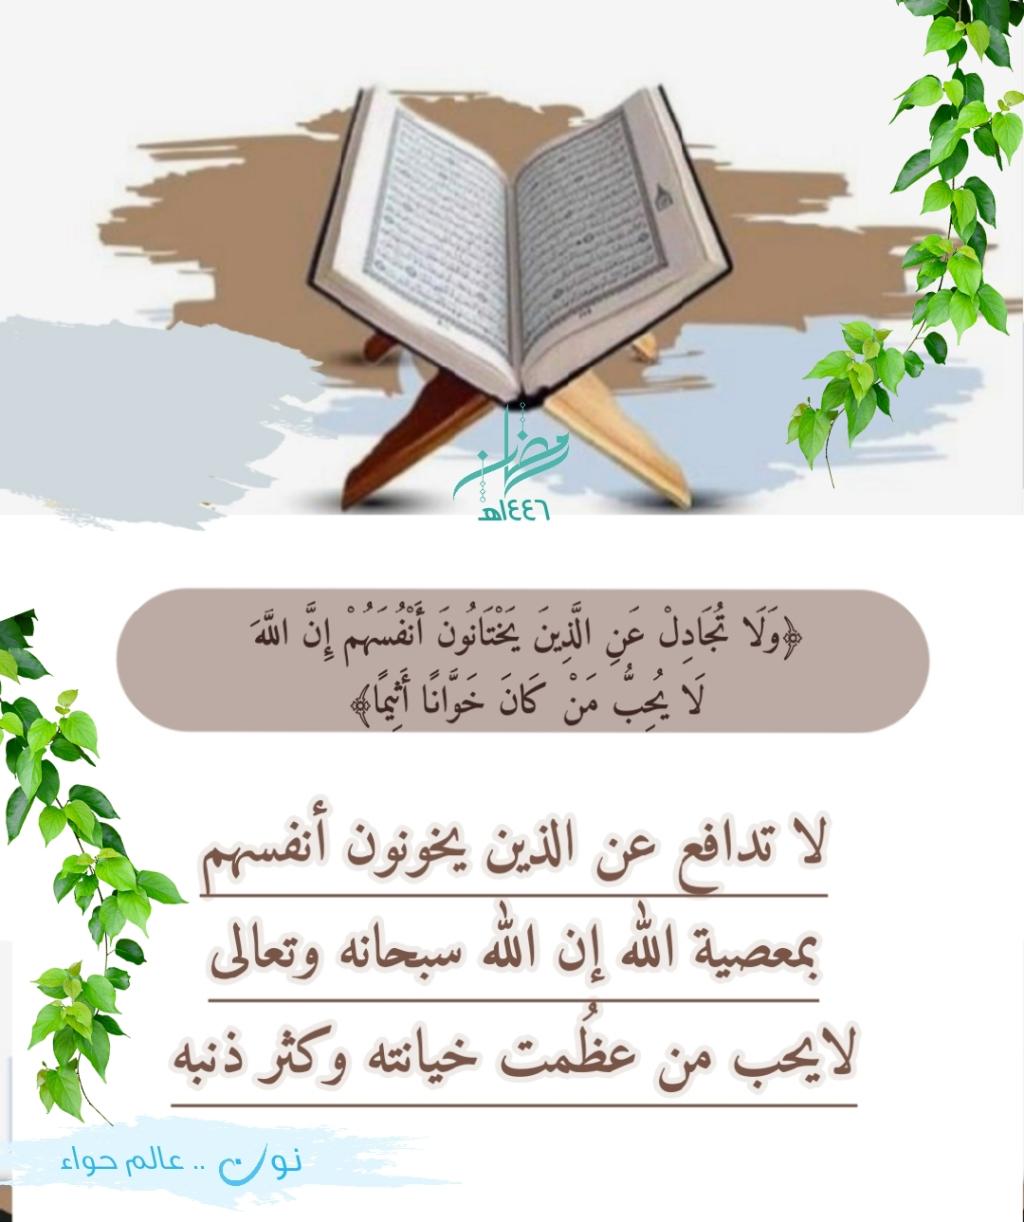 رمضان
١٤٤٦هـ
﴿وَلَا تُجَادِلْ عَنِ الَّذِينَ يَخْتَانُونَ أَنْفُسَهُمْ إِنَّ اللَّهَ
لَا يُحِبُّ مَنْ كَانَ خَوَّانًا أَثِيمًا﴾
لا تدافع عن الذين يخونون أنفسهم
بمعصية الله إن الله سبحانه وتعالى
لايحب من عظُمت خيانته وكثر ذنبه
نون .. عالم حواء